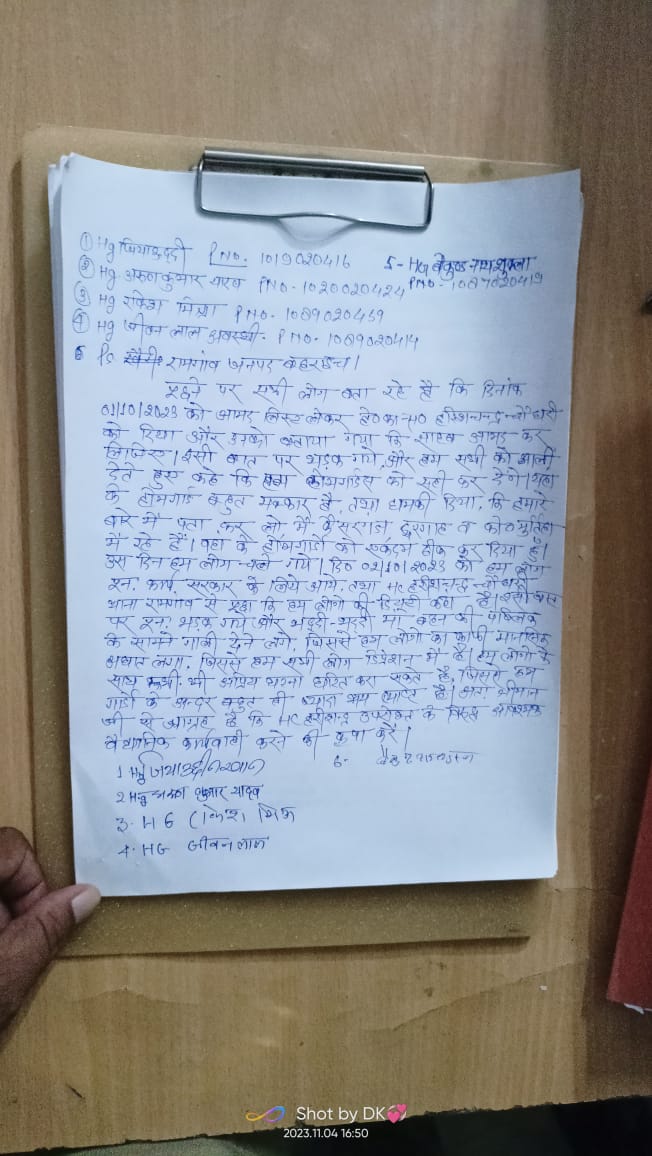 ① Hg जियाउद्दी PNO. 1019020416
5- HG बैकुण्ठ नाथ शुक्ला
② Hg. अरुण कुमार यादव PNO-1020020424
PNO-1087020419
③ Hg राकेश मिश्रा PNO-1089020439
④ Hg जीवन लाल अवस्थी- PNO-1089020414
PS रामगांव जनपद बहराइच।
पूछने पर सभी लोग बता रहे है कि दिनांक
01/10/2023 को आमद लिस्ट लेकर हे०का० हरिश्चन्द्र चौधरी
को दिया और उनको बताया गया कि साहब आमद कर
लिजिए। इसी बात पर भड़क गये और हम सभी को गाली
देते हुए कहे कि होमगार्डस को सही कर देंगे। यहा
के होमगार्ड बहुत मक्कार है, तथा धमकी दिया, कि हमारे
बारे में पता कर लो मैं कैसरगंज दरगाह व को० मुर्तिहा
में रहे हैं। वहा के होमगार्डो को एकदम ठीक कर दिया हूँ।
उस दिन हम लोग चले गये। दि० 02/10/2023 को हम लोग
पुन. कार्य सरकार के लिये आये, तथा HC हरीशचन्द्र चौधरी
थाना रामगांव से पूछा कि हम लोगो की डियुटी कहा है। इसी बात
पर पुन. भड़क गये और भद्दी-भद्दी मा बहन की पब्लिक
के सामने गाली देने लगे, जिससे हम लोगो का काफी मानसिक
अघात लगा. जिससे हम सभी लोग डिप्रेशन में है। हम लोगो के
साथ कभी भी अप्रिय घटना घटित करा सकते है, जिससे हम
गार्डो के अन्दर बहुत ही ज्यादा भय है। अतः श्रीमान
जी से आग्रह है कि HC हरीशचन्द्र उपरोक्त के विरुद्ध आवश्यक
वैधानिक कार्यवाही करने की कृपा करें।
1 Hg जियाउद्दीन खान
5-
2 Hg अरुण कुमार यादव
3- HG राकेश मिश्र
4- HG जीवन लाल
Shot by DK
2023.11.04 16:50